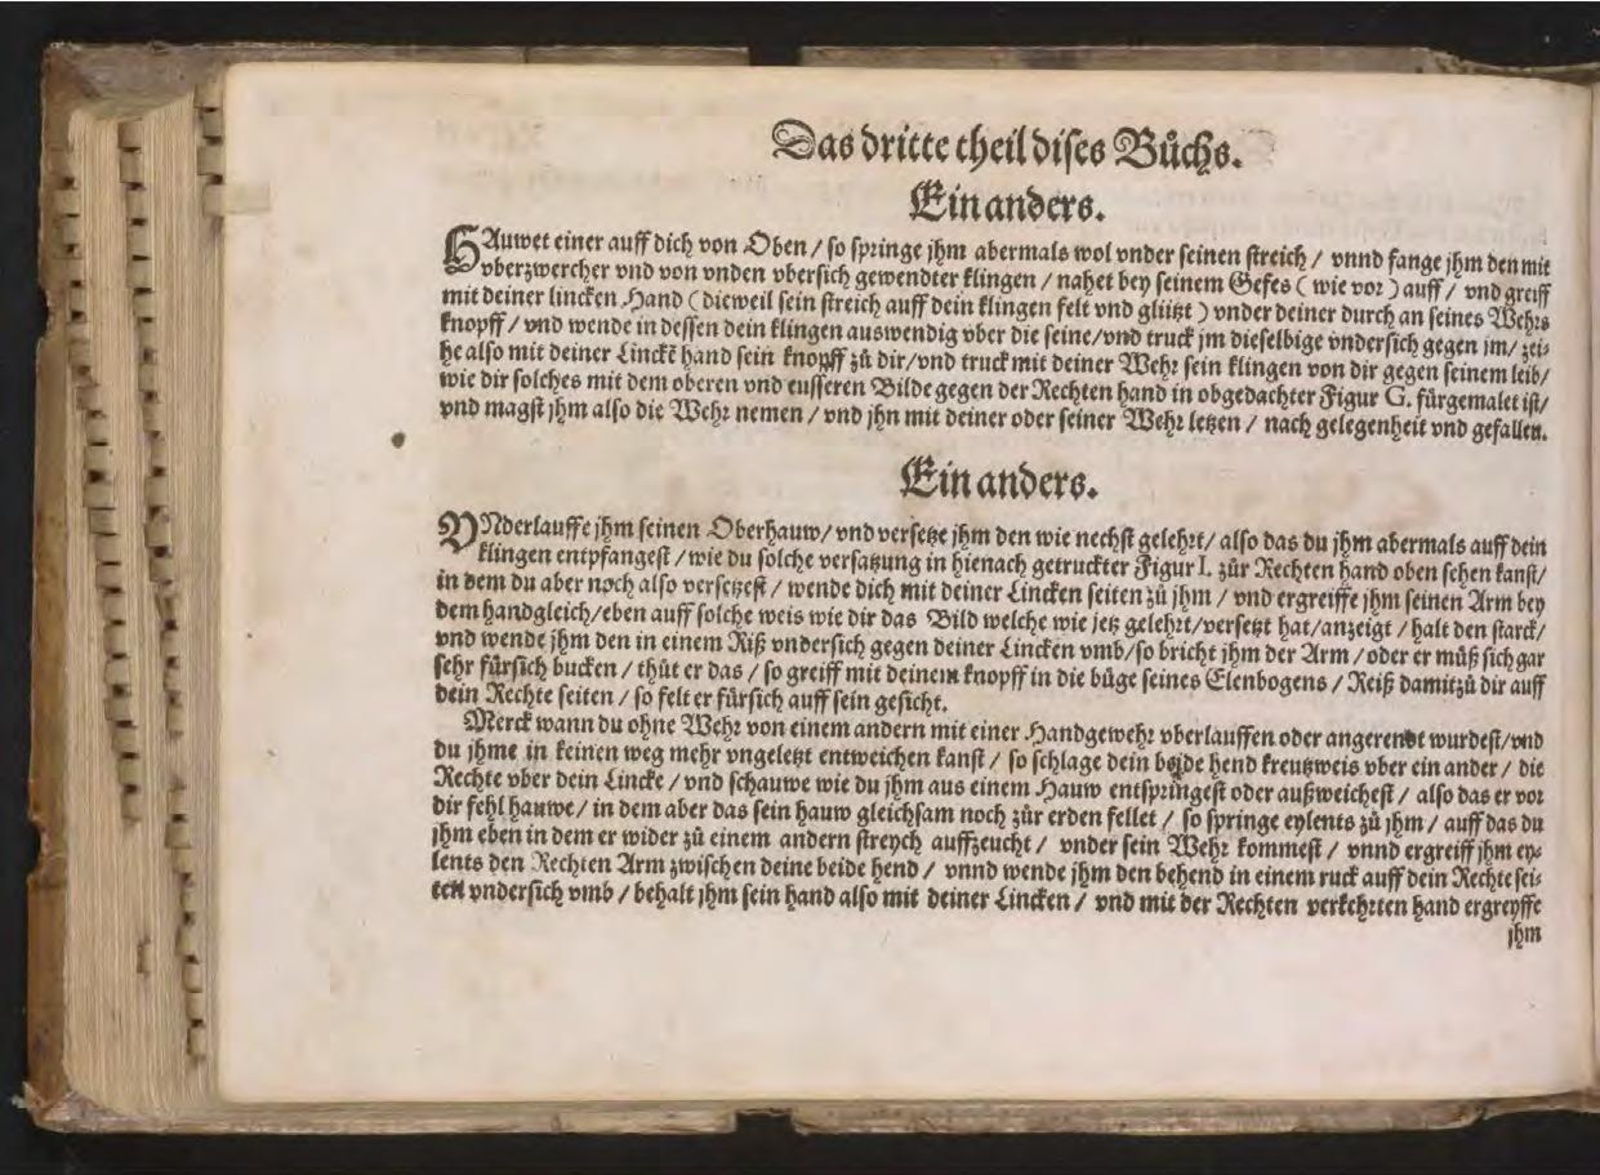 Das dritte theil dises Bůchs.
Ein anders.
HAuwet einer auff dich von Oben / so springe jhm abermals wol vnder seinen streich / vnnd fange jhm den mit
vberzwercher vnd von vnden vbersich gewendter klingen / nahet bey seinem Gefes ( wie vor ) auff / vnd greiff
mit deiner lincken Hand ( dieweil sein streich auff dein klingen felt vnd glützt ) vnder deiner durch an seines Wehrs
knopff / vnd wende in dessen dein klingen auswendig vber die seine / vnd truck jm dieselbige vndersich gegen jm / zei⸗
he also mit deiner Linckē hand sein knopff zů dir / vnd truck mit deiner Wehr sein klingen von dir gegen seinem leib /
wie dir solches mit dem oberen vnd eusseren Bilde gegen der Rechten hand in obgedachter Figur G. fürgemalet ist /
vnd magst jhm also die Wehr nemen / vnd jhn mit deiner oder seiner Wehr letzen / nach gelegenheit vnd gefallen.
Ein anders.
VNderlauffe jhm seinen Oberhauw / vnd versetze jhm den wie nechst gelehrt / also das du jhm abermals auff dein
klingen entpfangest / wie du solche versatzung in hienach getruckter Figur I. zůr Rechten hand oben sehen kanst /
in dem du aber noch also versetzest / wende dich mit deiner Lincken seiten zů jhm / vnd ergreiffe jhm seinen Arm bey
dem handgleich / eben auff solche weis wie dir das Bild welche wie jetz gelehrt / versetzt hat / anzeigt / halt den starck /
vnd wende jhm den in einem Riß vndersich gegen deiner Lincken vmb / so bricht jhm der Arm / oder er můß sich gar
sehr fürsich bucken / thůt er das / so greiff mit deinem knopff in die büge seines Elenbogens / Reiß damit zů dir auff
dein Rechte seiten / so felt er fürsich auff sein gesicht.
Merck wann du ohne Wehr von einem andern mit einer Handgewehr vberlauffen oder angerendt wurdest / vnd
du jhme in keinen weg mehr vngeletzt entweichen kanst / so schlage dein beide hend kreutzweis vber ein ander / die
Rechte vber dein Lincke / vnd schauwe wie du jhm aus einem Hauw entspringest oder außweichest / also das er vor
dir fehl hauwe / in dem aber das sein hauw gleichsam noch zůr erden fellet / so springe eylents zů jhm / auff das du
jhm eben in dem er wider zů einem andern streych auffzeucht / vnder sein Wehr kommest / vnnd ergreiff jhm ey⸗
lents den Rechten Arm zwischen deine beide hend / vnnd wende jhm den behend in einem ruck auff dein Rechte sei⸗
ten vndersich vmb / behalt jhm sein hand also mit deiner Lincken / vnd mit der Rechten verkehrten hand ergreyffe
jhm